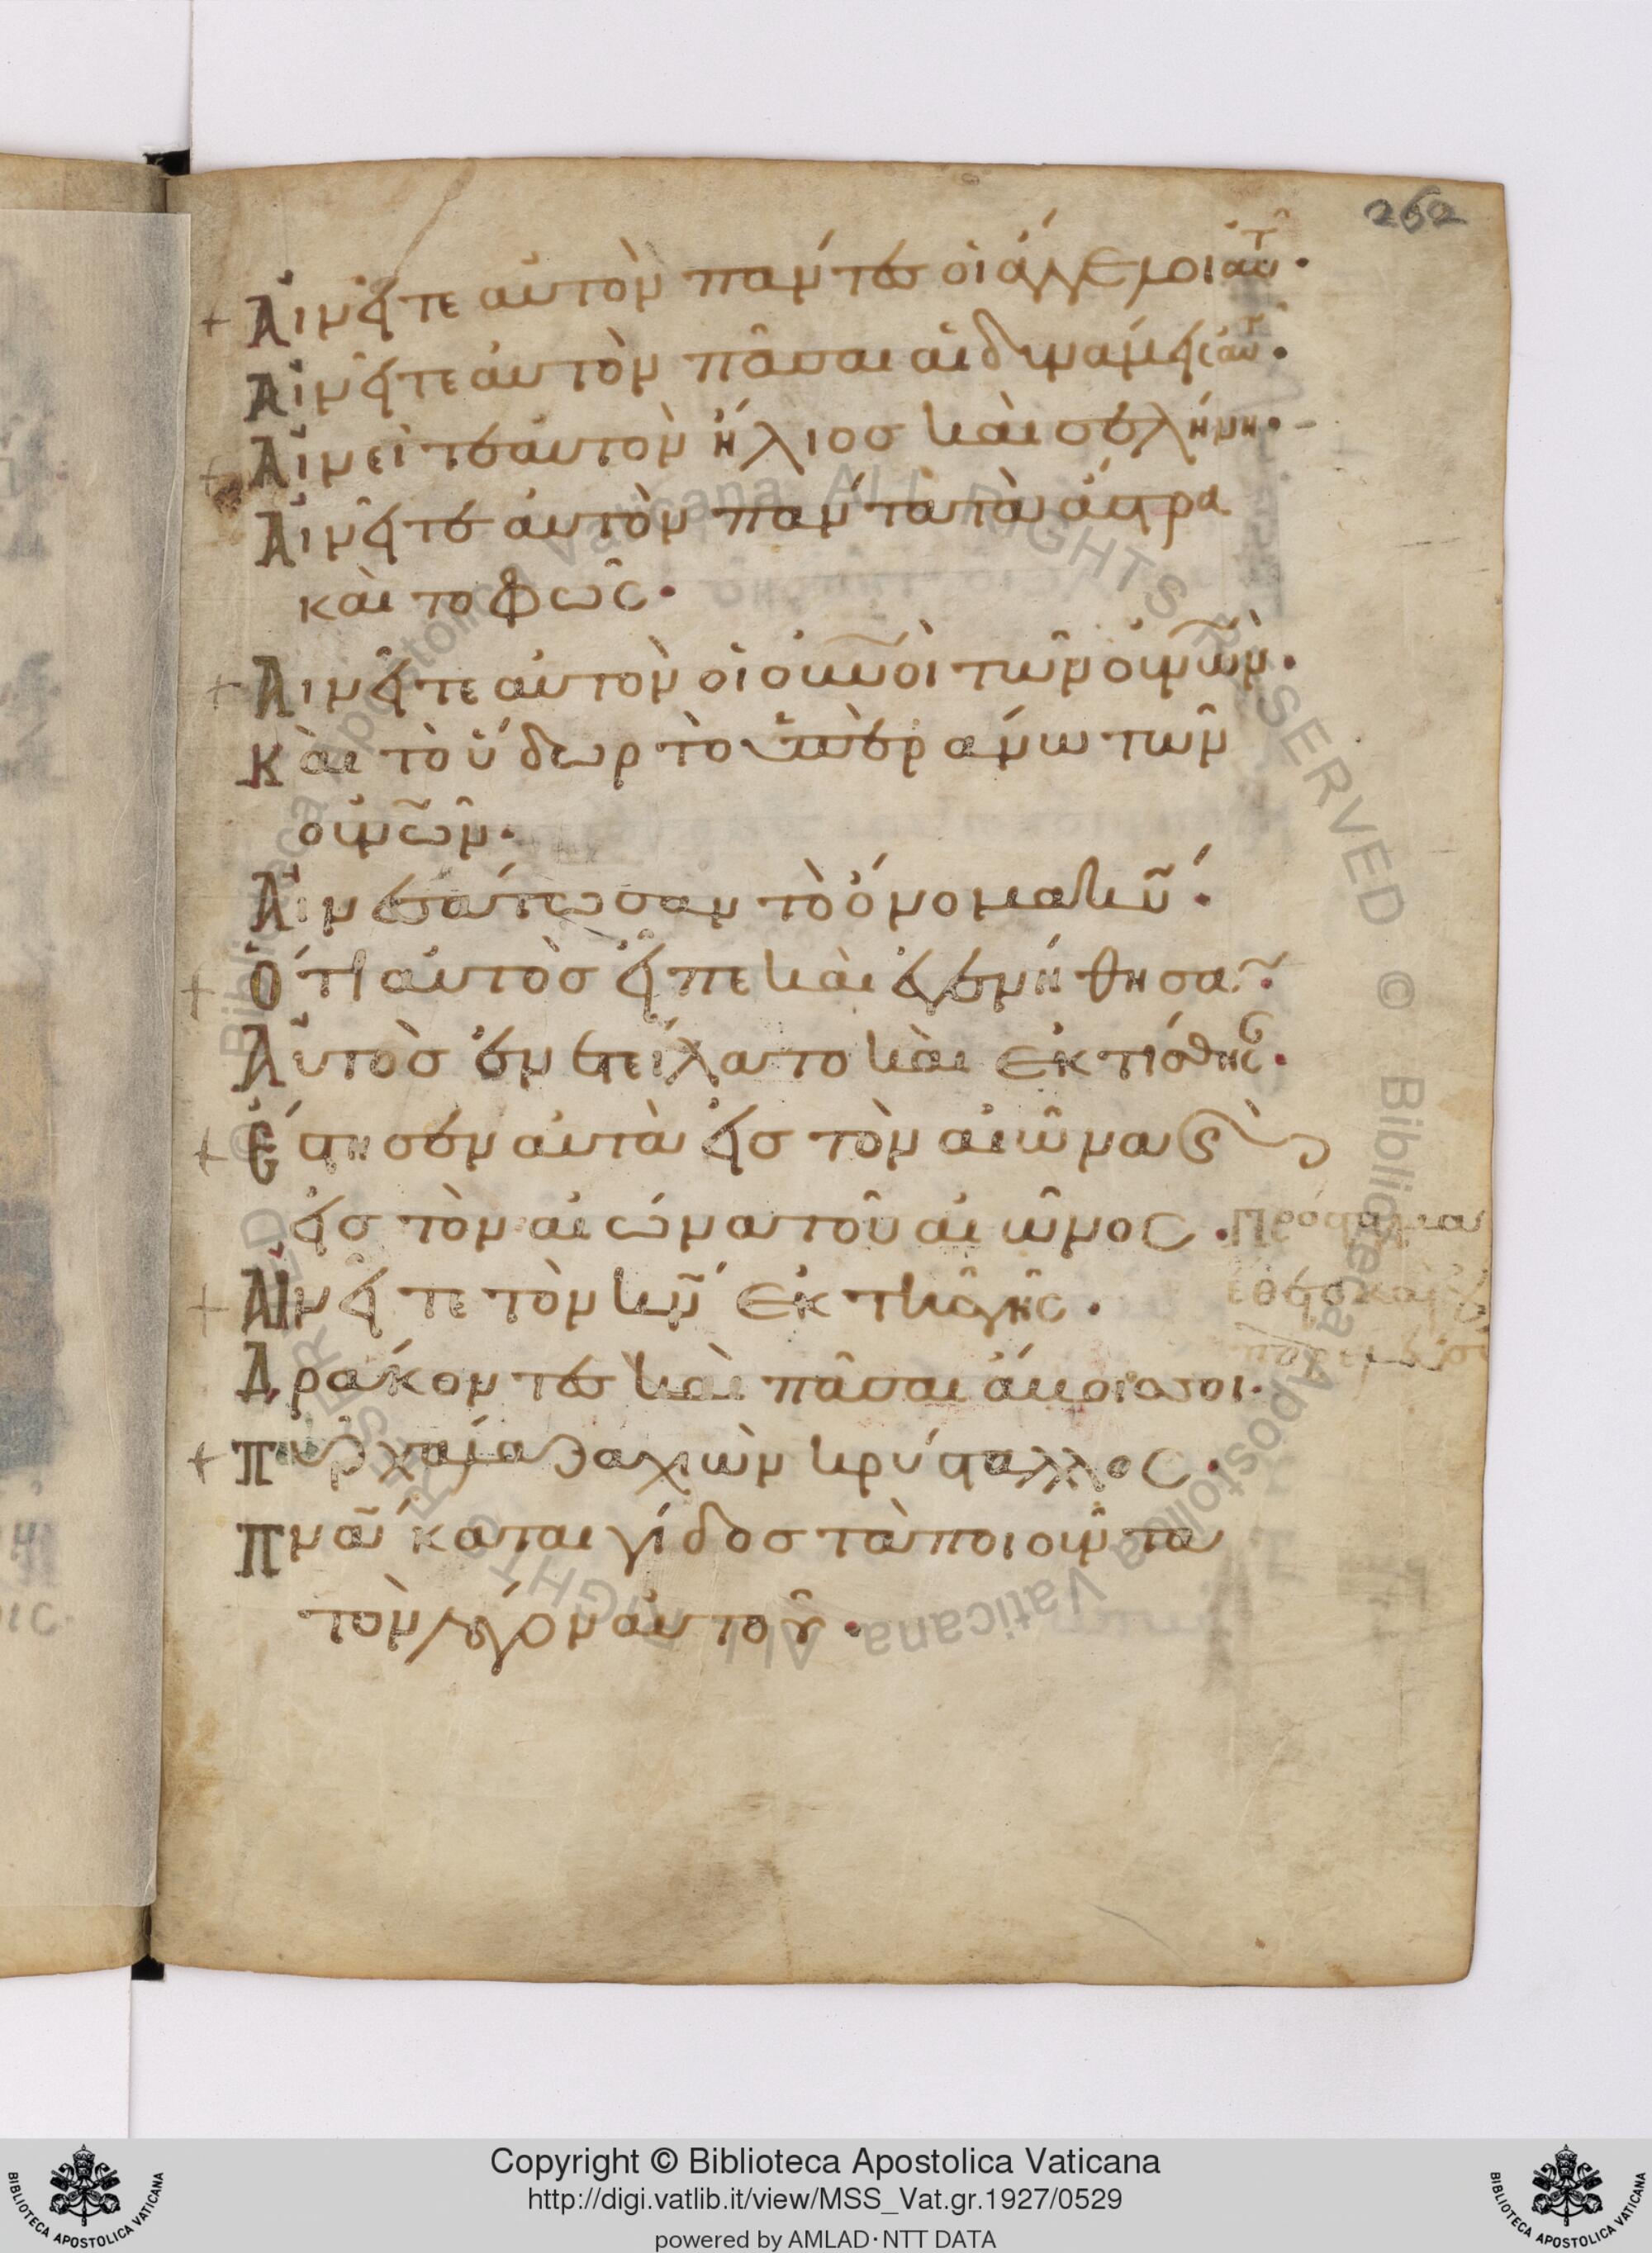 262
Αἰνεῖτε αὐτὸν πάντες οἱ ἄγγελοι αὐτ̂·
Αἰνεῖτε αὐτὸν πᾶσαι αἱ δυνάμεις αὐτ̂·
Αἰνεῖτε αὐτὸν ἥλιος καὶ σελήνη·
Αἰνεῖτε αὐτὸν πάντα τὰ ἄστρα
καὶ το φῶς·
Αἰνεῖτε αὐτὸν οἱ οὐν̅οὶ τῶν οὐν̅ῶν·
Καὶ τὸ ὕδωρ τὸ ὑπὲρ ἄνω τῶν
οὐν̅ῶν·
Αἰνεσάτωσαν τὸ ὄνομα κυ̅·
Ὅτι αὐτὸς εἶπε καὶ ἐγενήθησα̅·
Αὐτὸς ἐνετείλατο καὶ ἐκτίσθησ·
Ἔστησεν αὐτὰ εἰς τὸν αἰῶνα ϛ
εἰς τὸν αἰῶνα τοῦ αἰῶνος·
Αἰνεῖτε τὸν κν̅ ἐκ τῆς γῆς·
Δράκοντες καὶ πᾶσαι ἄβυσσοι·
Πῦρ χάλαζα χιὼν κρύσταλλος·
Πνα̅ καταιγίδος τὰ ποιοῦντα
τὸν λόγον αὐτοῦ·
Πρόσταγμα
ἔθετο καὶ
Copyright © Biblioteca Apostolica Vaticana
http://digi.vatlib.it/view/MSS_Vat.gr.1927/0529
powered by AMLAD·NTT DATA
BIBLIOTECA APOSTOLICA VATICANA
BIBLIOTECA APOSTOLICA VATICANA
© Biblioteca Apostolica Vaticana ALL RIGHTS RESERVED © Biblioteca Apostolica Vaticana ALL RIGHTS RESERVED